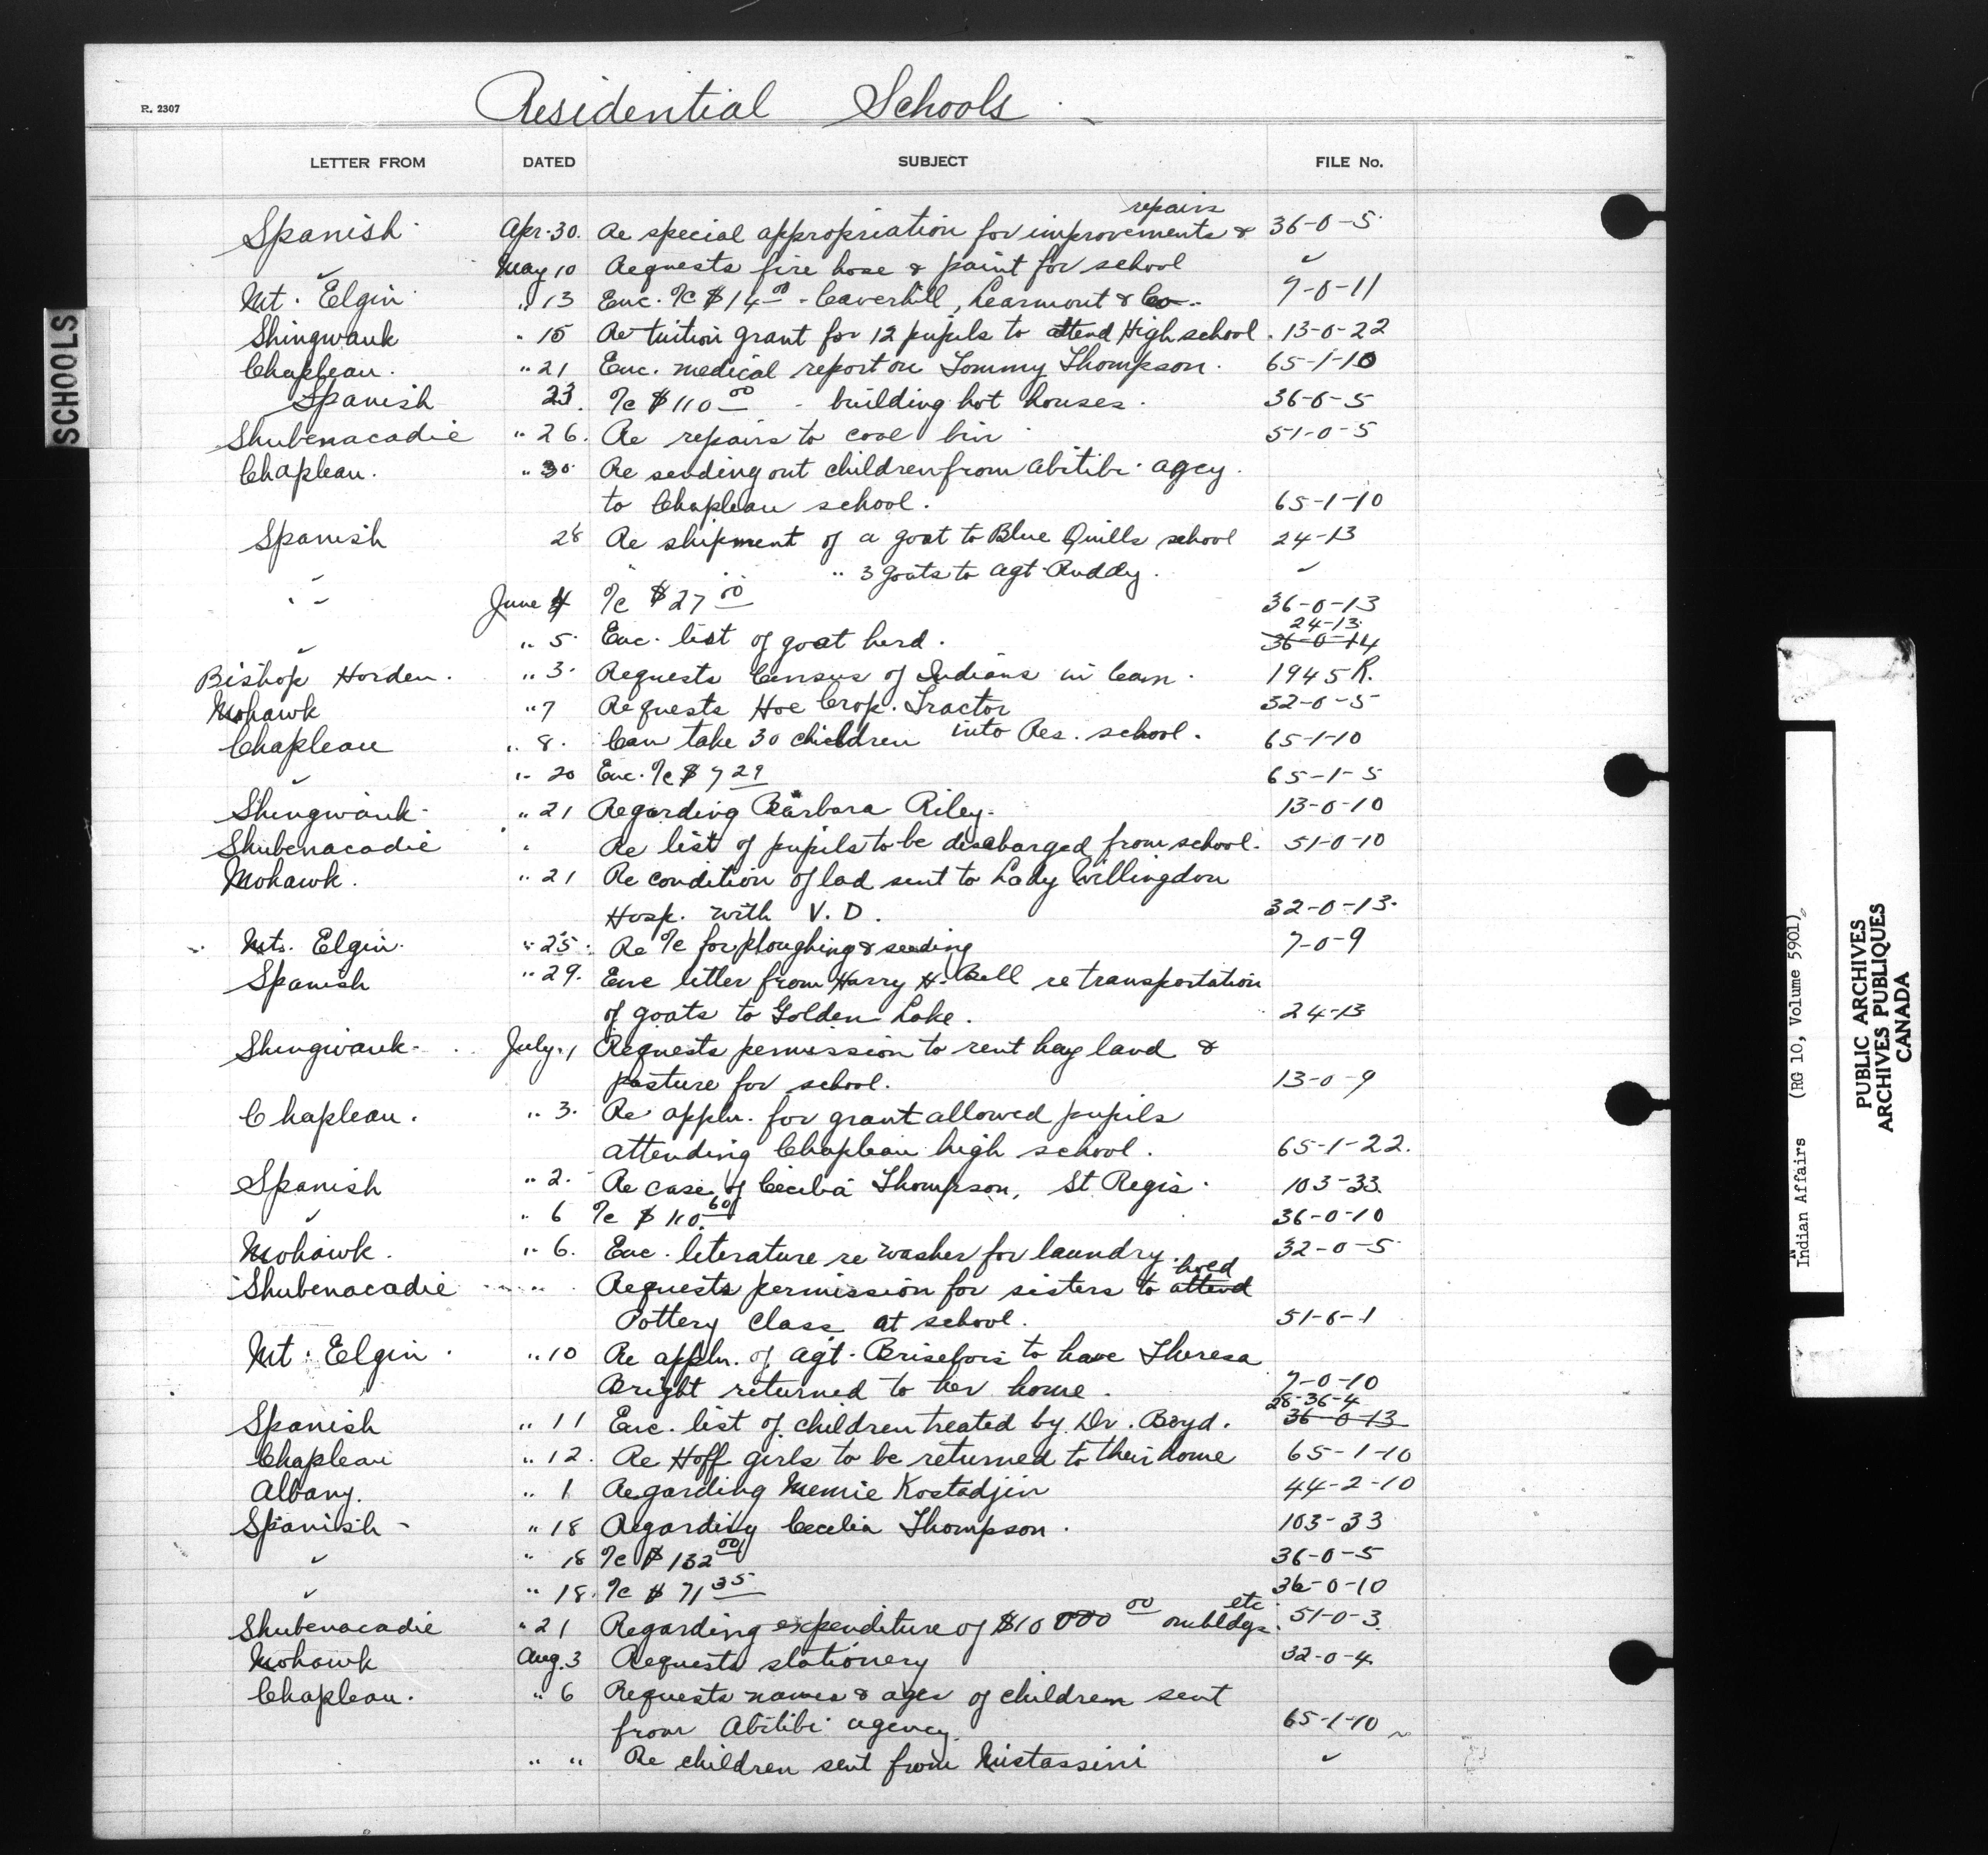 R. 2307
Residential Schools
LETTER FROM DATED SUBJECT FILE No.
repairs
Spanish Apr. 30. Re special appropriation for improvements & 36-0-5
✓ May 10 Requests fire hose & paint for school ✓
Mt. Elgin " 13 Enc. %c $14.00 - Caverhill, Learmont & Co. 7-0-11
Shingwauk " 15 Re tuition grant for 12 pupils to attend High school. 13-0-22
Chapleau. " 21 Enc. medical report on Tommy Thompson. 65-1-10
Spanish 23. %c $110 00 - building hot houses. 36-0-5
Shubenacadie " 26. Re repairs to coal bin 51-0-5
Chapleau. " 30 Re sending out children from Abitibi agcy.
to Chapleau school. 65-1-10
Spanish 28 Re shipment of a goat to Blue Quills school 24-13
✓ " " " 3 goats to Agt. Ruddy. ✓
" ✓ June 4 %c $27 00 36-0-13
24-13
✓ " 5. Enc. list of goat herd. 36-0-14
Bishop Horden. " 3. Requests Census of Indians in Can. 1945 R.
Mohawk " 7 Requests Hoe Crop. Tractor 32-0-5
Chapleau " 8. Can take 30 children into Res. school. 65-1-10
✓ " 20 Enc. %c $7 29 65-1-5
Shingwauk " 21 Regarding Barbara Riley. 13-0-10
Shubenacadie " Re list of pupils to be discharged from school. 51-0-10
Mohawk. " 21 Re condition of lad sent to Lady Willingdon
Hosp. with V. D. 32-0-13.
Mt. Elgin. " 25. Re %c for ploughing & seeding 7-0-9
Spanish " 29. Enc letter from Harry H. Bell re transportation
of goats to Golden Lake. 24-13
Shingwauk July. 1 Requests permission to rent hay land &
pasture for school. 13-0-9
Chapleau. " 3. Re appln. for grant allowed pupils
attending Chapleau high school. 65-1-22.
Spanish " 2. Re case of Cecilia Thompson, St Regis. 103-33.
✓ " 6 %c $110.60 36-0-10
Mohawk. " 6. Enc. literature re washer for laundry. 32-0-5
hold
Shubenacadie " " Requests permission for sisters to attend
Pottery Class at school. 51-0-1
Mt. Elgin. " 10 Re appln. of Agt. Brisebois to have Theresa
Bright returned to her home. 7-0-10
28-36-4
Spanish " 11 Enc. list of children treated by Dr. Boyd. 36-0-13
Chapleau " 12. Re Hoff girls to be returned to their home 65-1-10
Albany. " 1 Regarding Memie Kostadjin 44-2-10
Spanish - " 18 Regarding Cecelia Thompson. 103-33
✓ " 18 %c $132 00 36-0-5
✓ " 18. %c $71 35 36-0-10
etc
Shubenacadie " 21 Regarding expenditure of $10 000 00 on bldgs. 51-0-3.
Mohawk Aug. 3 Requests stationery 32-0-4.
Chapleau. " 6 Requests names & ages of children sent
from Abitibi agency. 65-1-10
" " Re children sent from Mistassini ✓
SCHOOLS
Indian Affairs (RG 10, Volume 5901)
PUBLIC ARCHIVES
ARCHIVES PUBLIQUES
CANADA